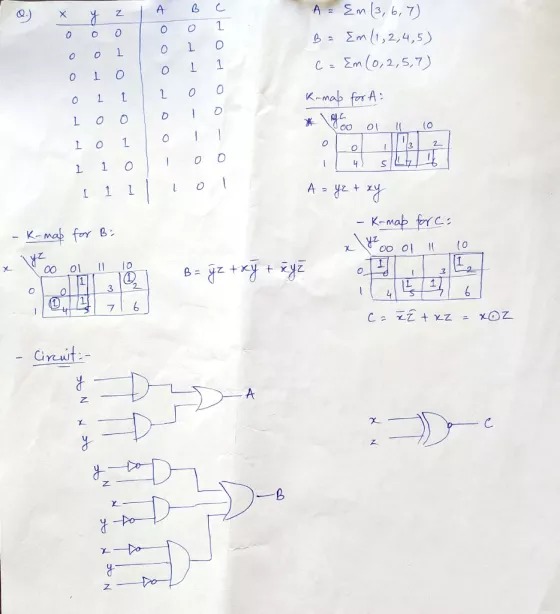 Q.) x y z A B C
0 0 0 0 0 1
0 0 1 0 1 0
0 1 0 0 1 1
0 1 1 1 0 0
1 0 0 0 1 0
1 0 1 0 1 1
1 1 0 1 0 0
1 1 1 1 0 1
A = Σm(3, 6, 7)
B = Σm(1, 2, 4, 5)
C = Σm(0, 2, 5, 7)
K-map for A:
x yz 00 01 11 10
0 0 1 1 3 2
1 4 5 1 7 1 6
A = yz + xy
- K-map for B:
x yz 00 01 11 10
0 0 1 3 1 2
1 1 4 1 5 7 6
B = y̅z + xy̅ + x̅yz̅
- K-map for C:
x yz 00 01 11 10
0 1 0 1 3 1 2
1 4 1 5 1 7 6
C = x̅z̅ + xz = x⊙z
- Circuit:-
y
z
x
y
A
y
z
x
y
x
y
z
B
x
z
C